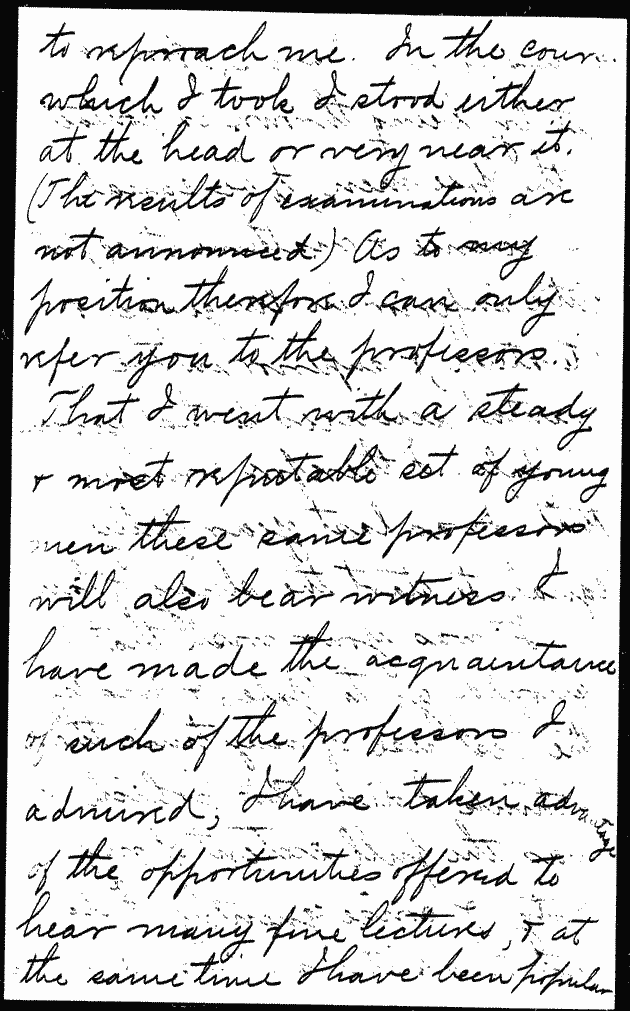 to reproach me. In the cour
which I took I stood either
at the head or very near it.
(The results of examinations are
not announced) As to my
position therefore I can only
refer you to the professors.
That I went with a steady
& most reputable set of young
men these same professors
will also bear witness I
have made the acquaintance
of such of the professors I
admired, I have taken advantage
of the opportunities offered to
hear many fine lectures, & at
the same time I have been popular